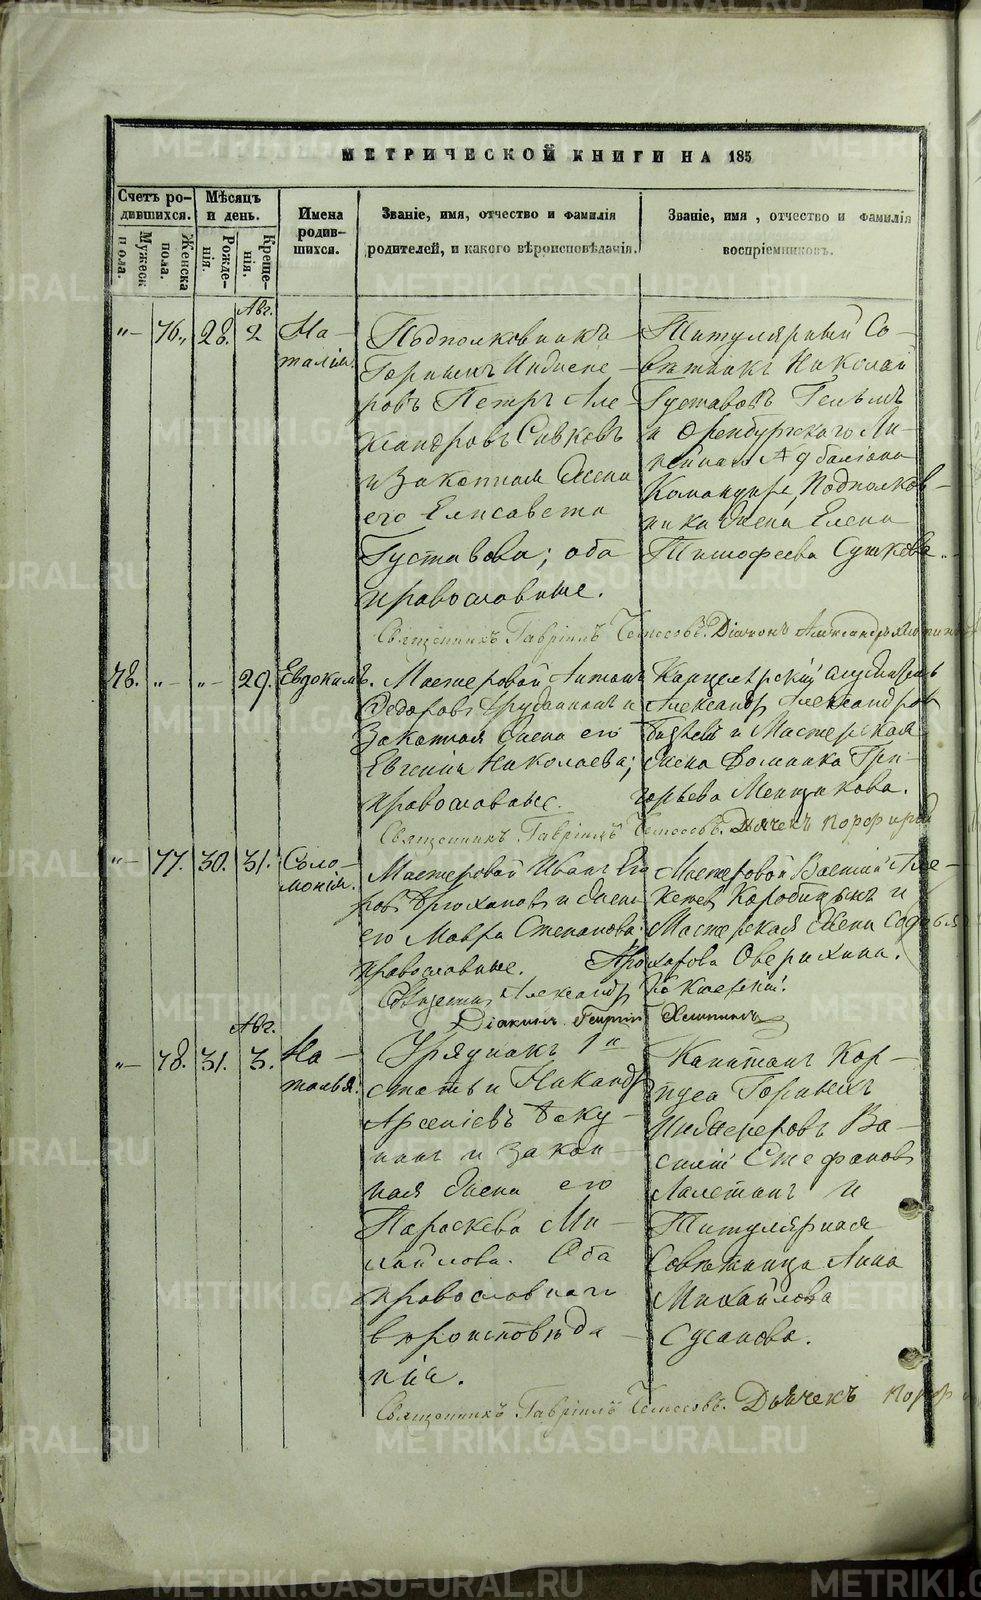 МЕТРИЧЕСКОЙ КНИГИ НА 185
Счетъ ро-
дившихся.
Мужеск
пола.
Женска
пола.
Мѣсяцъ
и день.
Рожде-
нія.
Креще-
нія.
Имена
родив-
шихся.
Званіе, имя, отчество и фамилія
родителей, и какого вѣроисповѣданія.
Званіе, имя, отчество и фамилія
воспріемниковъ.
Авг.
„— 76. 28. 2
На-
талія.
Подполковникъ
Горныхъ Инжене-
ровъ Петръ Але
ксандровъ
и законная жена
его Елисавета
Густавова; оба
православные.
Титулярный Со-
вѣтникъ Николай
Густавовъ
и Оренбургскаго Ли-
нейнаго баліона
Командира, Подполков-
ника жена Елена
Тимофеева
Священникъ Гавріилъ Діаконъ Александръ
78. „— „— 29. Евдокимъ.
Мастеровой Антонъ
Ѳедоровъ и
Законная жена его
Евгенія Николаева;
православные.
Канцелярскій служитель
Александр Александров
и Мастерская
жена Домника Гри-
горьева Меньщикова.
Священникъ Гавріилъ Дьячекъ Порфирій
„— 77. 30. 31.
Соло-
монія.
Мастеровой Иванъ Его
ровъ и жена
его Мавра Степанова
православные.
Мастеровой Василій Але-
Коробицынъ и
Мастерская жена
Прохорова
Александръ
Діаконъ Георгій
Авг.
„— 78. 31. 3.
На-
талья.
Урядникъ 1й
статьи Никандр
Арсеніевъ Баку-
нинъ и закон
ная жена его
Параскева Ми-
хайлова. Оба
православнаго
вѣроисповѣда-
нія.
Капитанъ Кор-
пуса Горныхъ
Инженеровъ Ва-
силій Стефановъ
и
Титулярная
Совѣтница Анна
Михайлова
Сусанова.
Священникъ Гавріилъ Дьячекъ Порф
METRIKI.GASO-URAL.RU